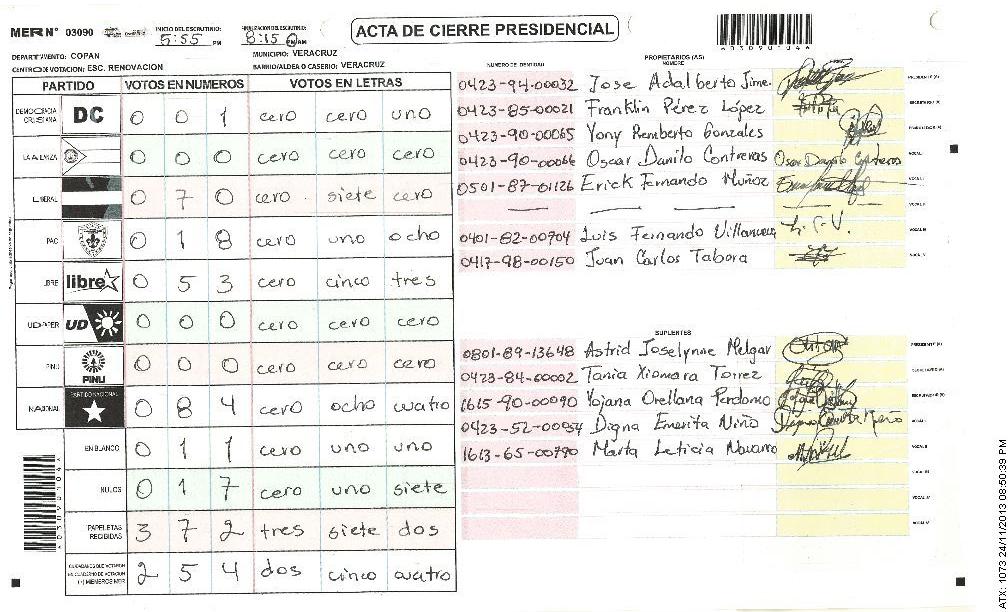 MER Nº 03090
INICIO DEL ESCRUTINIO: 5:55 PM
FINALIZACION DEL ESCRUTINIO: 8:15 PM
ACTA DE CIERRE PRESIDENCIAL
DEPARTAMENTO: COPAN
MUNICIPIO: VERACRUZ
CENTRO DE VOTACION: ESC. RENOVACION
BARRIO/ALDEA O CASERIO: VERACRUZ
PARTIDO VOTOS EN NUMEROS VOTOS EN LETRAS
DEMOCRACIA CRISTIANA DC 0 0 1 cero cero uno
LA ALIANZA 0 0 0 cero cero cero
LIBERAL 0 7 0 cero siete cero
PAC 0 1 8 cero uno ocho
LIBRE libre 0 5 3 cero cinco tres
UD 0 0 0 cero cero cero
PINU PINU 0 0 0 cero cero cero
NACIONAL PARTIDO NACIONAL 0 8 4 cero ocho cuatro
EN BLANCO 0 1 1 cero uno uno
NULOS 0 1 7 cero uno siete
PAPELETAS RECIBIDAS 3 7 2 tres siete dos
CIUDADANOS QUE VOTARON EN CUADERNO DE VOTACION (+) MIEMBROS MER 2 5 4 dos cinco cuatro
A03090104A
NUMERO DE IDENTIDAD
PROPIETARIOS (AS)
NOMBRE
0423-94-00032 Jose Adalberto Jime PRESIDENTE (A)
0423-85-00021 Franklin Pérez López SECRETARIO (A)
0423-90-00065 Yony Remberto Gonzales ESCRUTADOR (A)
0423-90-00066 Oscar Danilo Contreras Oscar Danilo Contreras VOCAL I
0501-87-01126 Erick Fernando Muñoz VOCAL II
VOCAL III
0401-82-00704 Luis Fernando Villanueva L.F.V. VOCAL IV
0417-98-00150 Juan Carlos Tabora VOCAL V
SUPLENTES
0801-89-13648 Astrid Joselynne Melgar PRESIDENTE (A)
0423-84-00002 Tania Xiomara Torrez SECRETARIO (A)
1615-90-00090 Yojana Orellana Perdomo ESCRUTADOR (A)
0423-52-00054 Digna Emerita Niño VOCAL I
1613-65-00790 Marta Leticia Navarro VOCAL II
VOCAL III
VOCAL IV
VOCAL V
ATX: 1073 24/11/2013 08:50:39 PM